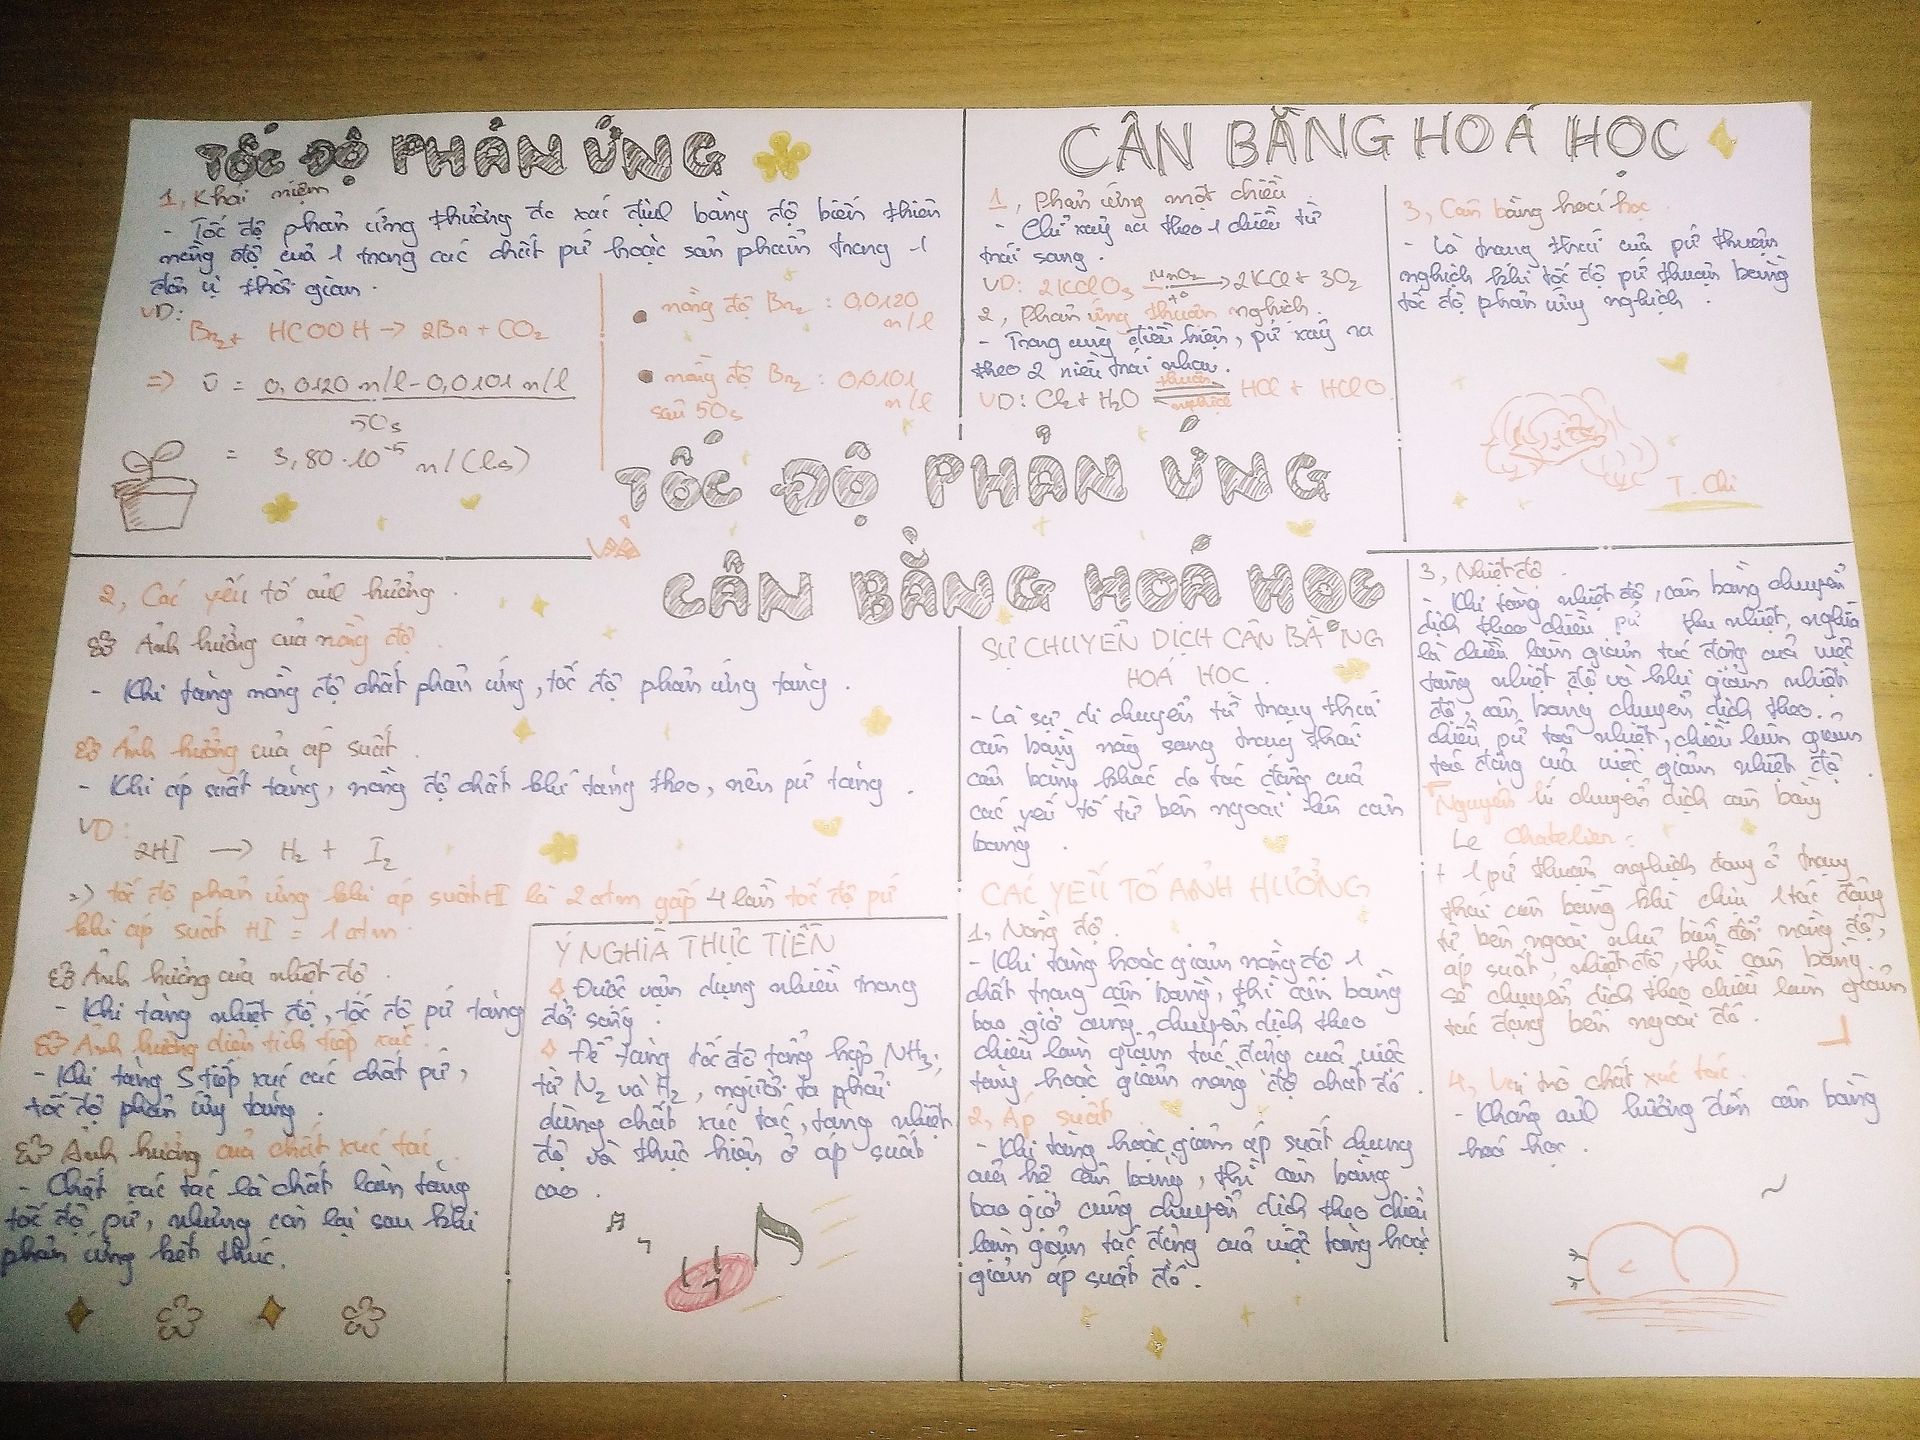 TỐC ĐỘ PHẢN ỨNG
1, Khái niệm
- Tốc độ phản ứng thường đc xác định bằng độ biến thiên
nồng độ của 1 trong các chất pứ hoặc sản phẩm trong 1
đơn vị thời gian.
VD:
Br₂ + HCOOH → 2Br + CO₂
⇒ v̄ = 0,0120 n/l - 0,0101 n/l
50s
= 3,80.10⁻⁵ n/(ls)
nồng độ Br₂ : 0,0120
n/l
nồng độ Br₂ : 0,0101
sau 50s n/l
CÂN BẰNG HOÁ HỌC
1, Phản ứng một chiều
- Chỉ xảy ra theo 1 chiều từ
trái sang.
VD: 2KClO₃ MnO₂ t° → 2KCl + 3O₂
2, Phản ứng thuận nghịch.
- Trong cùng điều kiện, pứ xảy ra
theo 2 chiều trái nhau.
VD: Cl₂ + H₂O thuận nghịch HCl + HClO.
3, Cân bằng hoá học.
- Là trạng thái của pứ thuận
nghịch khi tốc độ pứ thuận bằng
tốc độ phản ứng nghịch.
T. Chi
TỐC ĐỘ PHẢN ỨNG
VÀ
CÂN BẰNG HOÁ HỌC
2, Các yếu tố ảnh hưởng.
Ảnh hưởng của nồng độ
- Khi tăng nồng độ chất phản ứng, tốc độ phản ứng tăng.
Ảnh hưởng của áp suất.
- Khi áp suất tăng, nồng độ chất khí tăng theo, nên pứ tăng.
VD:
2HI → H₂ + I₂
=> tốc độ phản ứng khi áp suất HI là 2 atm gấp 4 lần tốc độ pứ
khi áp suất HI = 1 atm.
Ảnh hưởng của nhiệt độ.
- Khi tăng nhiệt độ, tốc độ pứ tăng
Ảnh hưởng diện tích tiếp xúc.
- Khi tăng S tiếp xúc các chất pứ,
tốc độ phản ứng tăng.
Ảnh hưởng của chất xúc tác
- Chất xúc tác là chất làm tăng
tốc độ pứ, nhưng còn lại sau khi
phản ứng kết thúc.
Ý NGHĨA THỰC TIỄN
Được vận dụng nhiều trong
đời sống.
Để tăng tốc độ tổng hợp NH₃,
từ N₂ và H₂, người ta phải
dùng chất xúc tác, tăng nhiệt
độ và thực hiện ở áp suất
cao.
SỰ CHUYỂN DỊCH CÂN BẰNG
HOÁ HỌC.
- Là sự di chuyển từ trạng thái
cân bằng này sang trạng thái
cân bằng khác do tác động của
các yếu tố từ bên ngoài lên cân
bằng.
CÁC YẾU TỐ ẢNH HƯỞNG
1, Nồng độ.
- Khi tăng hoặc giảm nồng độ 1
chất trong cân bằng, thì cân bằng
bao giờ cũng chuyển dịch theo
chiều làm giảm tác động của việc
tăng hoặc giảm nồng độ chất đó.
2, Áp suất
- Khi tăng hoặc giảm áp suất chung
của hệ cân bằng, thì cân bằng
bao giờ cũng chuyển dịch theo chiều
làm giảm tác động của việc tăng hoặc
giảm áp suất đó.
3, Nhiệt độ.
- Khi tăng nhiệt độ, cân bằng chuyển
dịch theo chiều pứ thu nhiệt, nghĩa
là chiều làm giảm tác động của việc
tăng nhiệt độ và khi giảm nhiệt
độ, cân bằng chuyển dịch theo
chiều pứ toả nhiệt, chiều làm giảm
tác động của việc giảm nhiệt độ.
Nguyên lí chuyển dịch cân bằng
Le Chatelier:
+ 1 pứ thuận nghịch đang ở trạng
thái cân bằng khi chịu 1 tác động
từ bên ngoài như biến đổi nồng độ,
áp suất, nhiệt độ, thì cân bằng
sẽ chuyển dịch theo chiều làm giảm
tác động bên ngoài đó.
4, Vai trò chất xúc tác.
- Không ảnh hưởng đến cân bằng
hoá học.